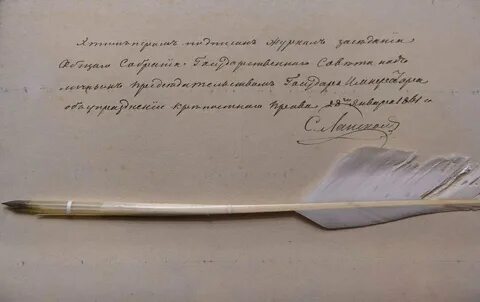 Этимъ перомъ подписанъ Журналъ заседанiя
Общаго Собранiя Государственнаго Совета подъ
личнымъ председательствомъ Государя Императора
объ упраздненiи крепостнаго права, 28го Января 1861 г.
С. Ланской